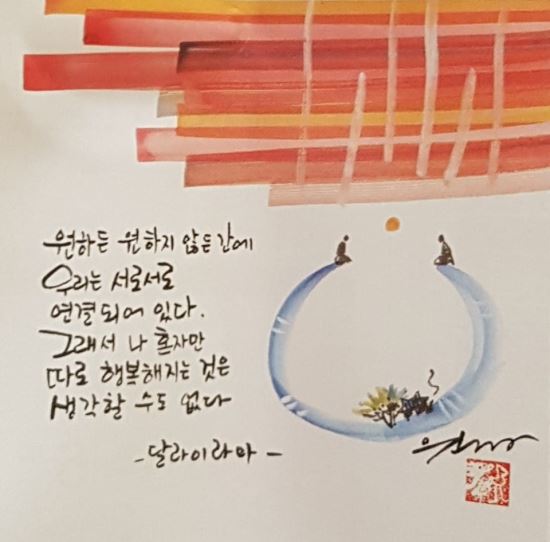 원하든 원하지 않든간에
우리는 서로서로
연결되어 있다.
그래서 나 혼자만
따로 행복해지는 것은
생각할 수도 없다
-달라이라마-